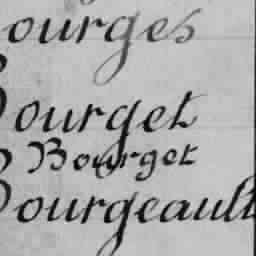 Bourges
Bourget
Bourget
Bourgeault